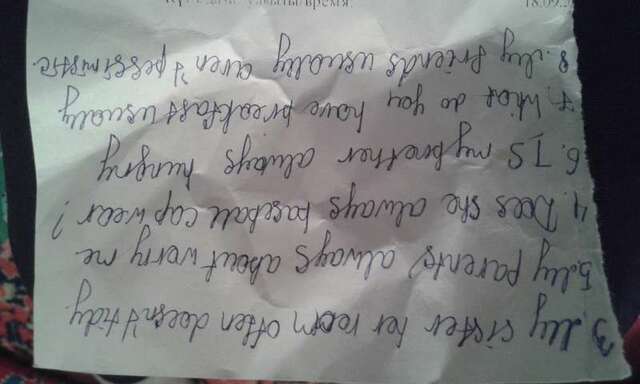 3. My sister her room often doesn't tidy.
5. My parents always about worry me
4. Does she always baseball cap wear?
6. Is my brother always hungry
7. What do you have breakfast usually
8. My friends usually aren't pessimistic.
время: 18.09.2